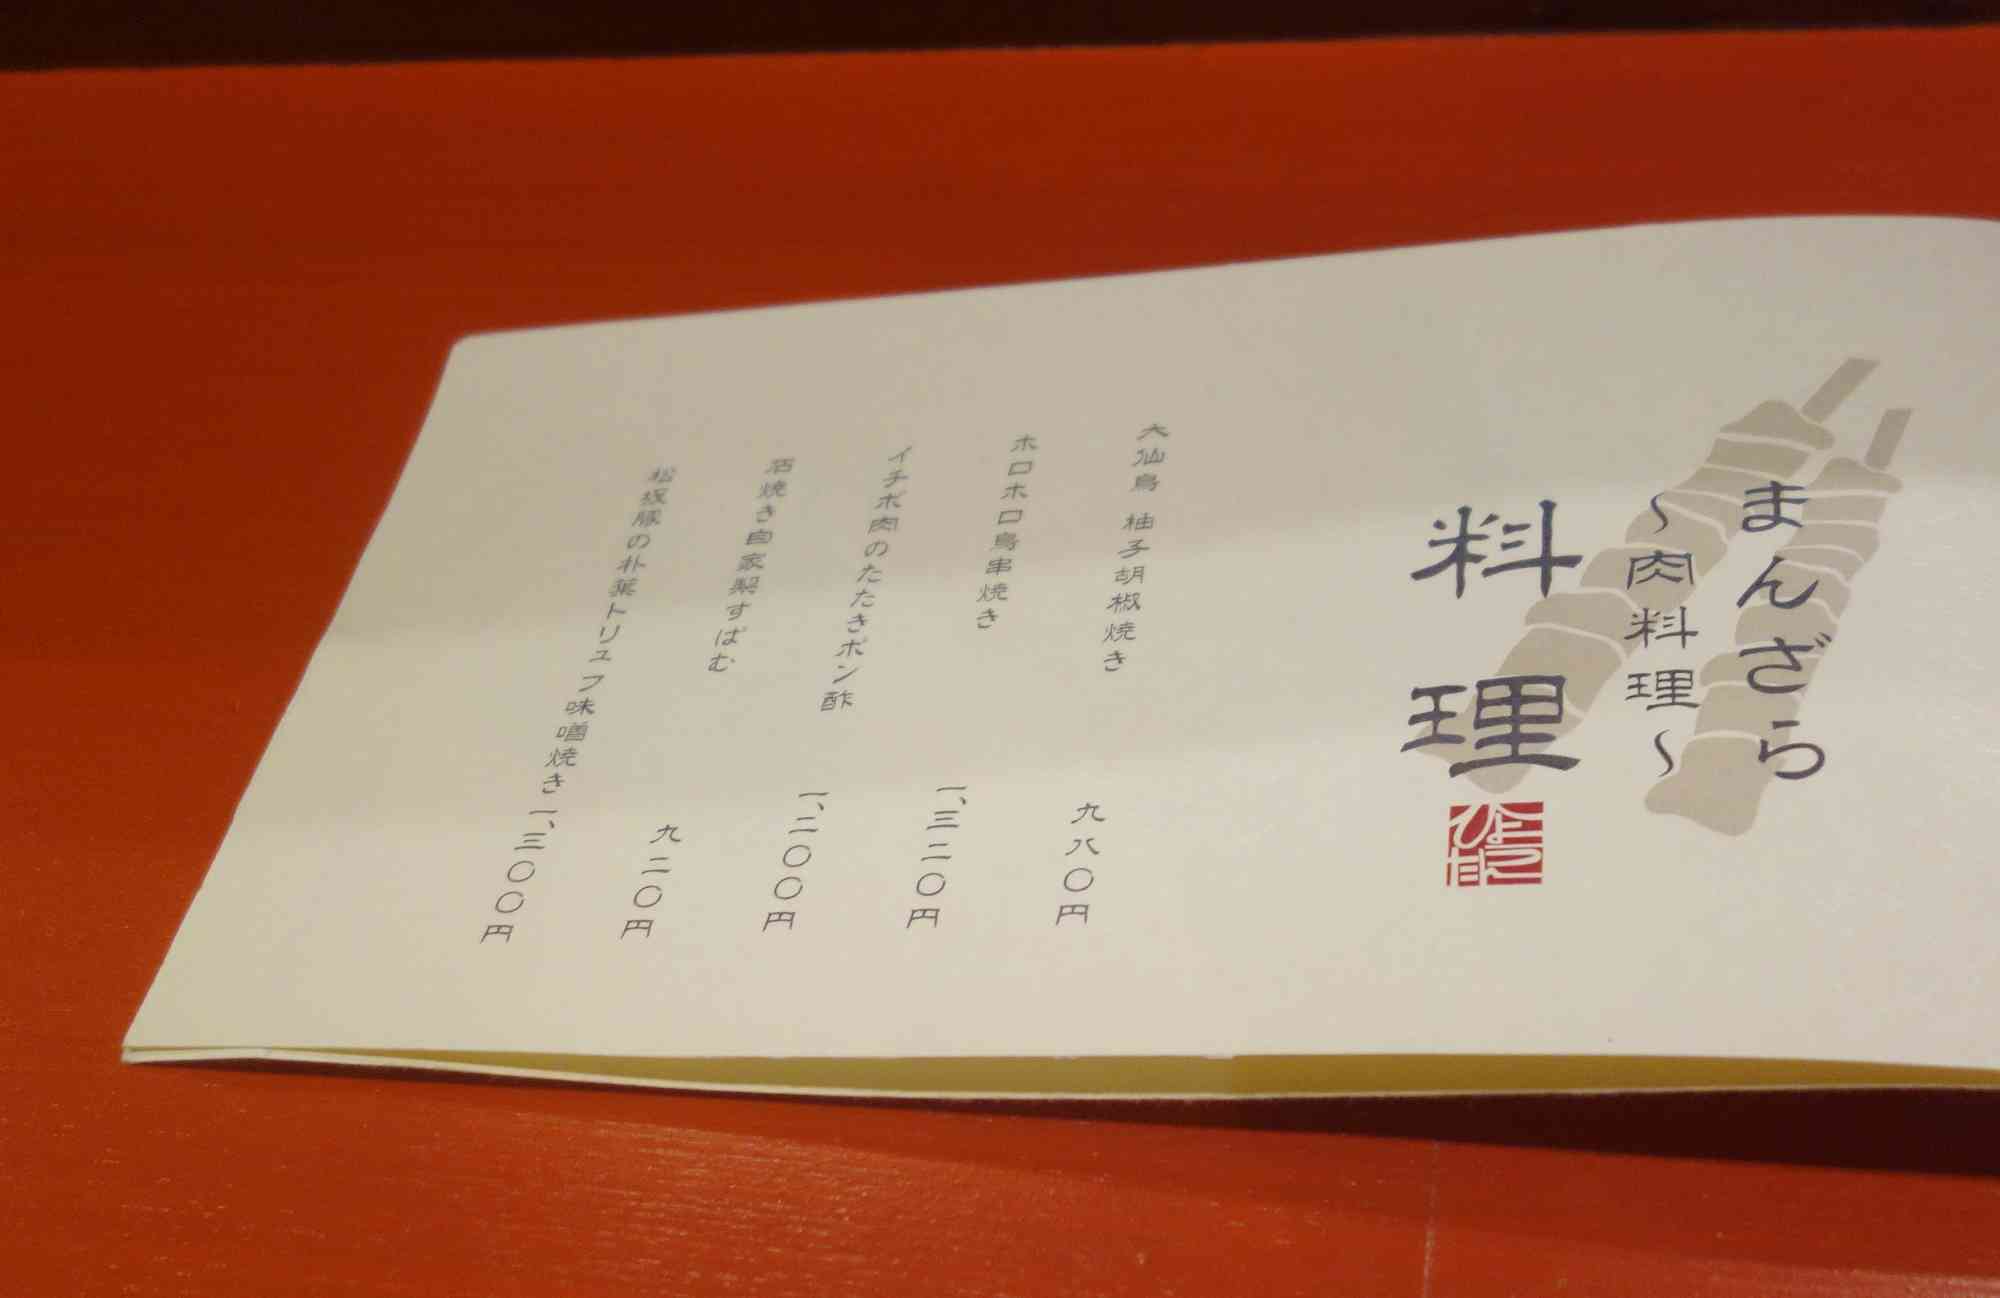 まんざら
〜肉料理〜
料理
大仙鳥 柚子胡椒焼き 九八〇円
ホロホロ鳥串焼き 一、三二〇円
イチボ肉のたたきポン酢 一、二〇〇円
石焼き自家製すぱむ 九二〇円
松坂豚の朴葉トリュフ味噌焼き 一、三〇〇円